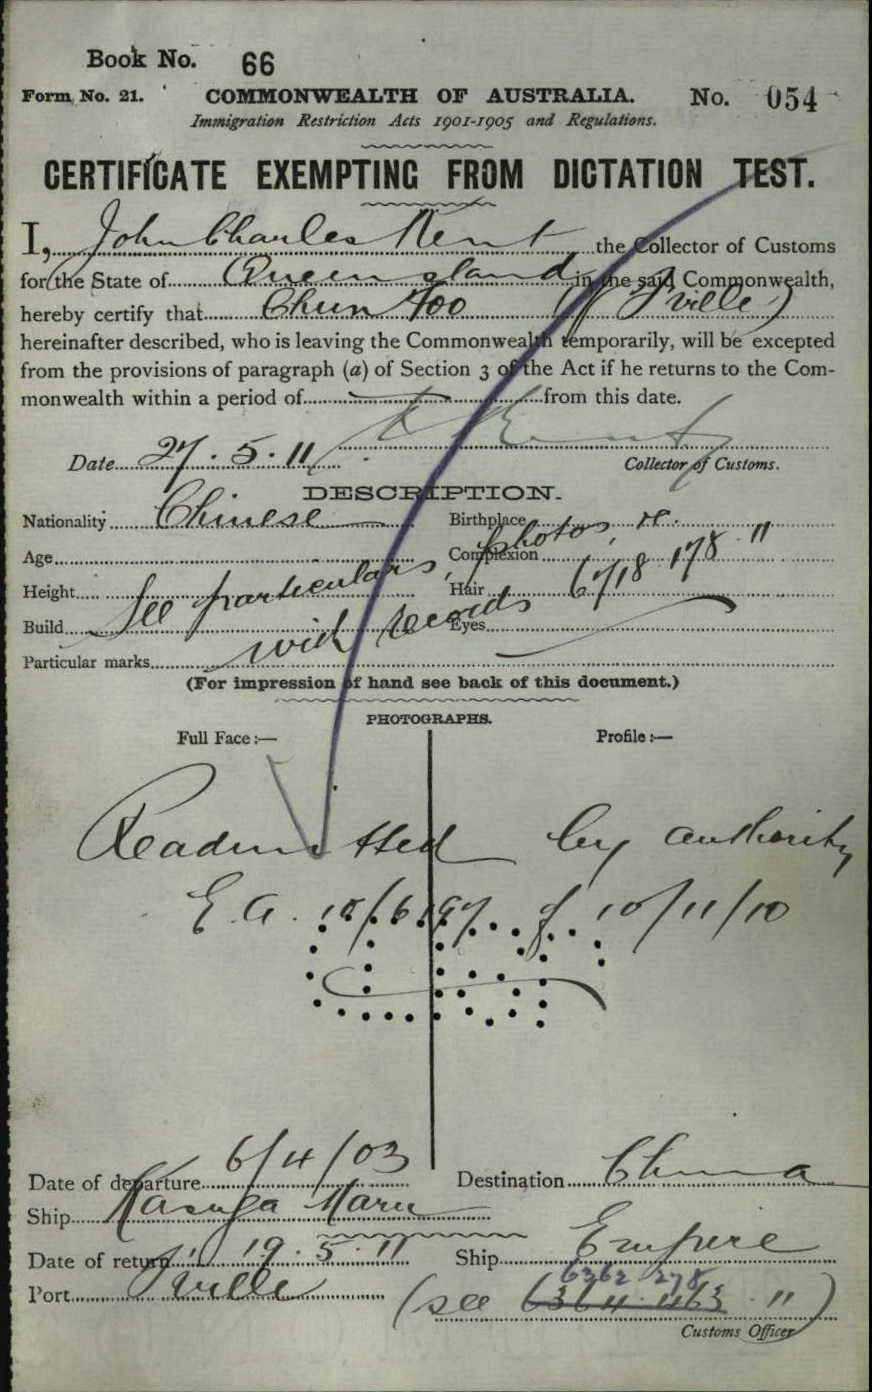 Book No. 66
Form No. 21. COMMONWEALTH OF AUSTRALIA. No. 054
Immigration Restriction Acts 1901-1905 and Regulations.
CERTIFICATE EXEMPTING FROM DICTATION TEST.
I, John Charles Kent the Collector of Customs
for the State of Queensland in the said Commonwealth,
hereby certify that Chun Foo (of T'ville)
hereinafter described, who is leaving the Commonwealth temporarily, will be excepted
from the provisions of paragraph (a) of Section 3 of the Act if he returns to the Com-
monwealth within a period of from this date.
Kent
Date 27.5.11 Collector of Customs.
DESCRIPTION.
Nationality Chinese Birthplace
Age Complexion
Height Hair
Build Eyes
Particular marks
See particulars, photos, &c.
with records 6718.178.11
(For impression of hand see back of this document.)
PHOTOGRAPHS.
Full Face :— Profile :—
Readmitted by authority
E.A. 10/6197 of 10/11/10
Date of departure 6/4/03 Destination China
Ship Kasuga Maru
Date of return 19.5.11 Ship Empire
Port T'ville
6362 278
(see 6364 463 . 11)
Customs Officer